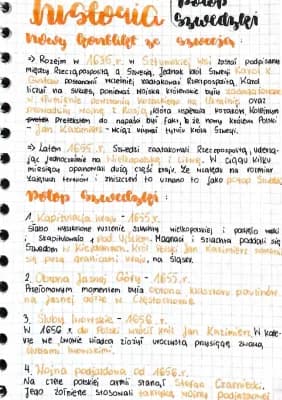 historia potop szwedzki
Nowy konflikt ze Szwecją
-> Rozejm w 1635 r. w Sztumskiej wsi został podpisany
między Rzeczpospolitą a Szwecją. Jednak król Szwecji Karol X
Gustaw postanowił zaatakować Rzeczpospolitą. Karol
liczył na sukces, ponieważ wojska królewskie były
w tłumienie powstania kozackiego na Ukrainie oraz
prowadziły wojnę z Rosją, która wspierała kozaków. Kolejnym
Pretekstem do napaści był fakt, że nowy król Polski
- Jan Kazimierz - wciąż używał tytułu króla Szwecji.
-> Latem 1655 r. Szwedzi zaatakowali Rzeczpospolitą, uderza-
jąc jednocześnie na Wielkopolskę i Litwę. W ciągu kilku
miesięcy opanowali dużą część kraju. Ze względu na rozmiar
i zniszczeń to uznano to jako potop Szwedzki
Potop Szwedzki:
1. Kapitulacja kraju - 1655 r.
Słabo wyszkolone ruszenie szlachty wielkopolskiej
i skapitulowało pod Ujściem. Magnaci i szlachta poddali się
Szwedom w Kiejdanach. Król Polski Jan Kazimierz
się poza granicami kraju, na Śląsk.
2. Obrona Jasnej Góry - 1655 r.
Przełomowym momentem była obrona klasztoru paulinów
na Jasnej Górze w Częstochowie.
3. Śluby lwowskie - 1656 r.
W 1656 r. do Polski wrócił król Jan Kazimierz. W kate-
drze we Lwowie władca złożył uroczystą przysięgę, zwaną
ślubami lwowskimi.
4. Wojna podjazdowa od 1656 r.
Na czele polskiej armii stanął Stefan Czarniecki.
Jego żołnierze stosowali taktykę wojny podjazdowej